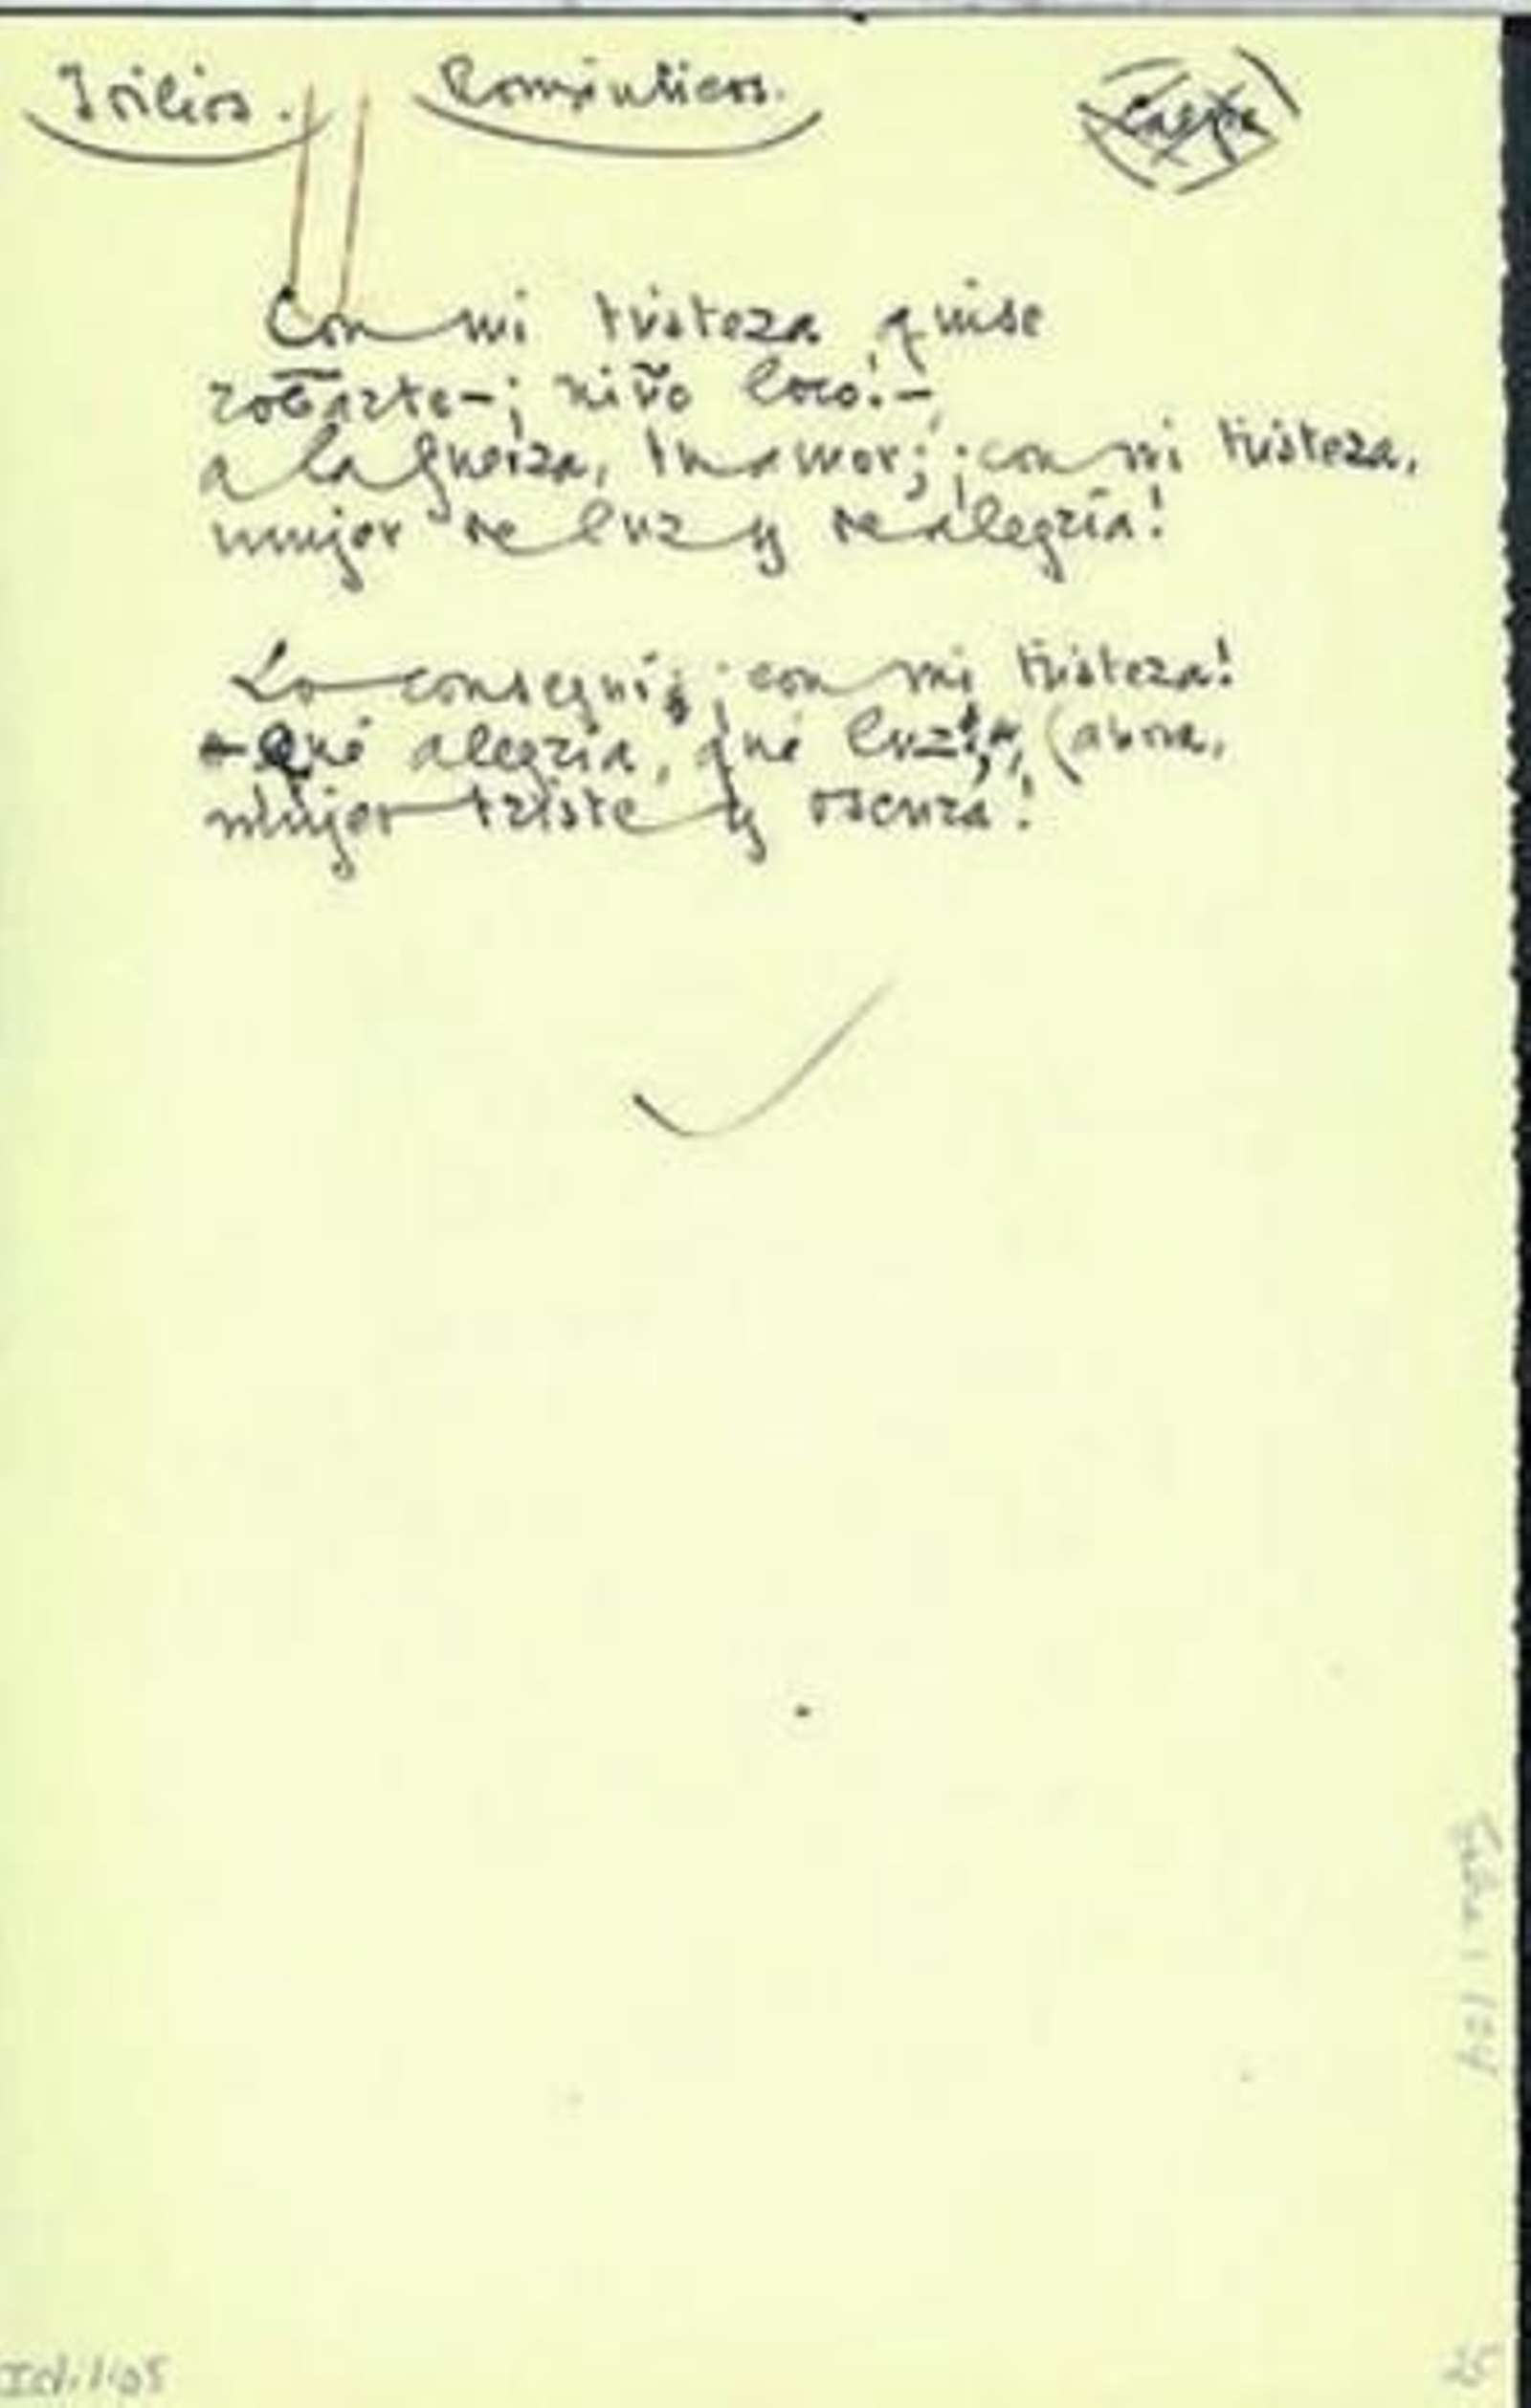 Idilios. Románticos.
Con mi tristeza quise
robarte —¡niño loco!—,
a la fuerza, tu amor; ¡con mi tristeza,
mujer de luz y de alegría!
Lo conseguí; ¡con mi tristeza!
—Qué alegría, qué luz, (ahora,
mujer triste y oscura!
Idilios